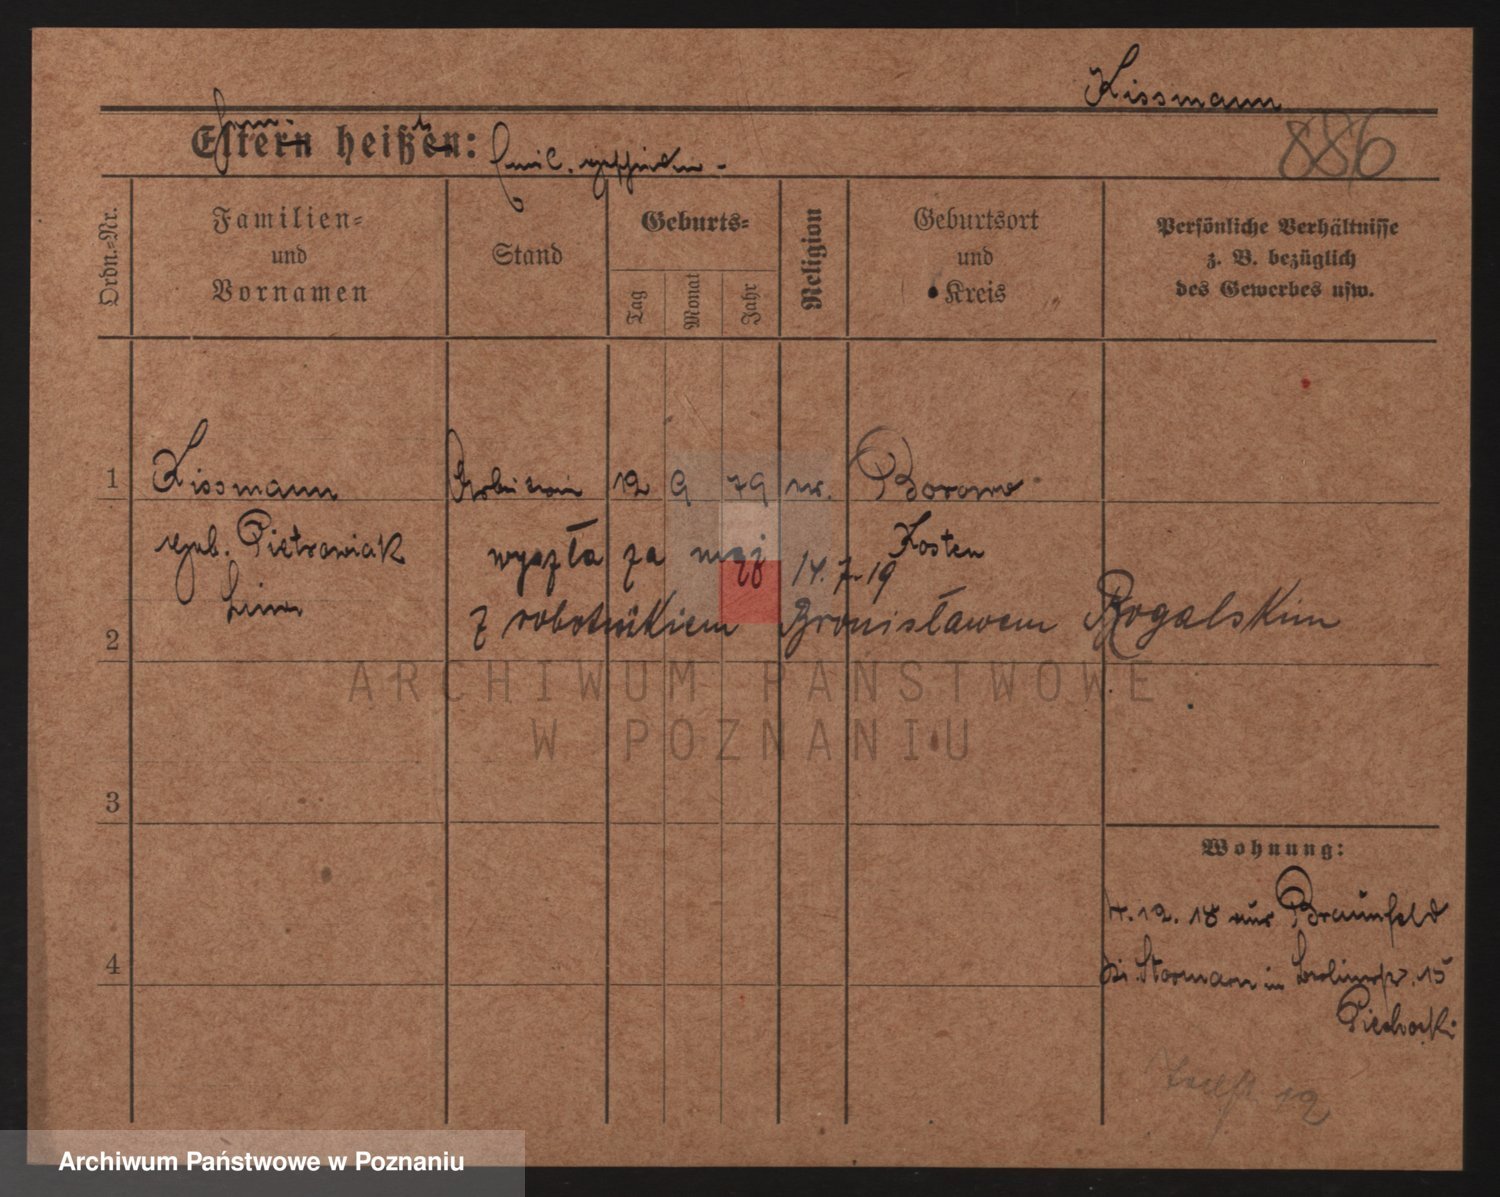 Kissmann
886
Eltern heißen: Emil. geschieden -
Ordn.=Nr.
Familien=
und
Vornamen
Stand
Geburts=
Tag
Monat
Jahr
Religion
Geburtsort
und
Kreis
Persönliche Verhältnisse
z. B. bezüglich
des Gewerbes usw.
1
Kissmann Arbeiterin 12 9 79 Borowo
geb. Pietrowiak wyszła za mąż 14. 7. 19 Kosten
z robotnikiem Bronisławem Rogalskim
2
3
4
Wohnung:
4. 12. 18 aus Braunfeld
bei Stormann in Berlinerstr. 15
Piechocki
12
ARCHIWUM PAŃSTWOWE
W POZNANIU
Archiwum Państwowe w Poznaniu